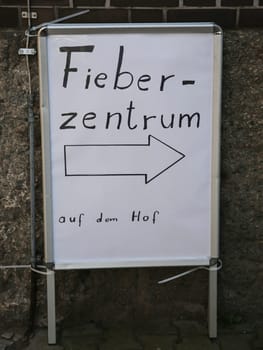 Fieber-
zentrum
auf dem Hof